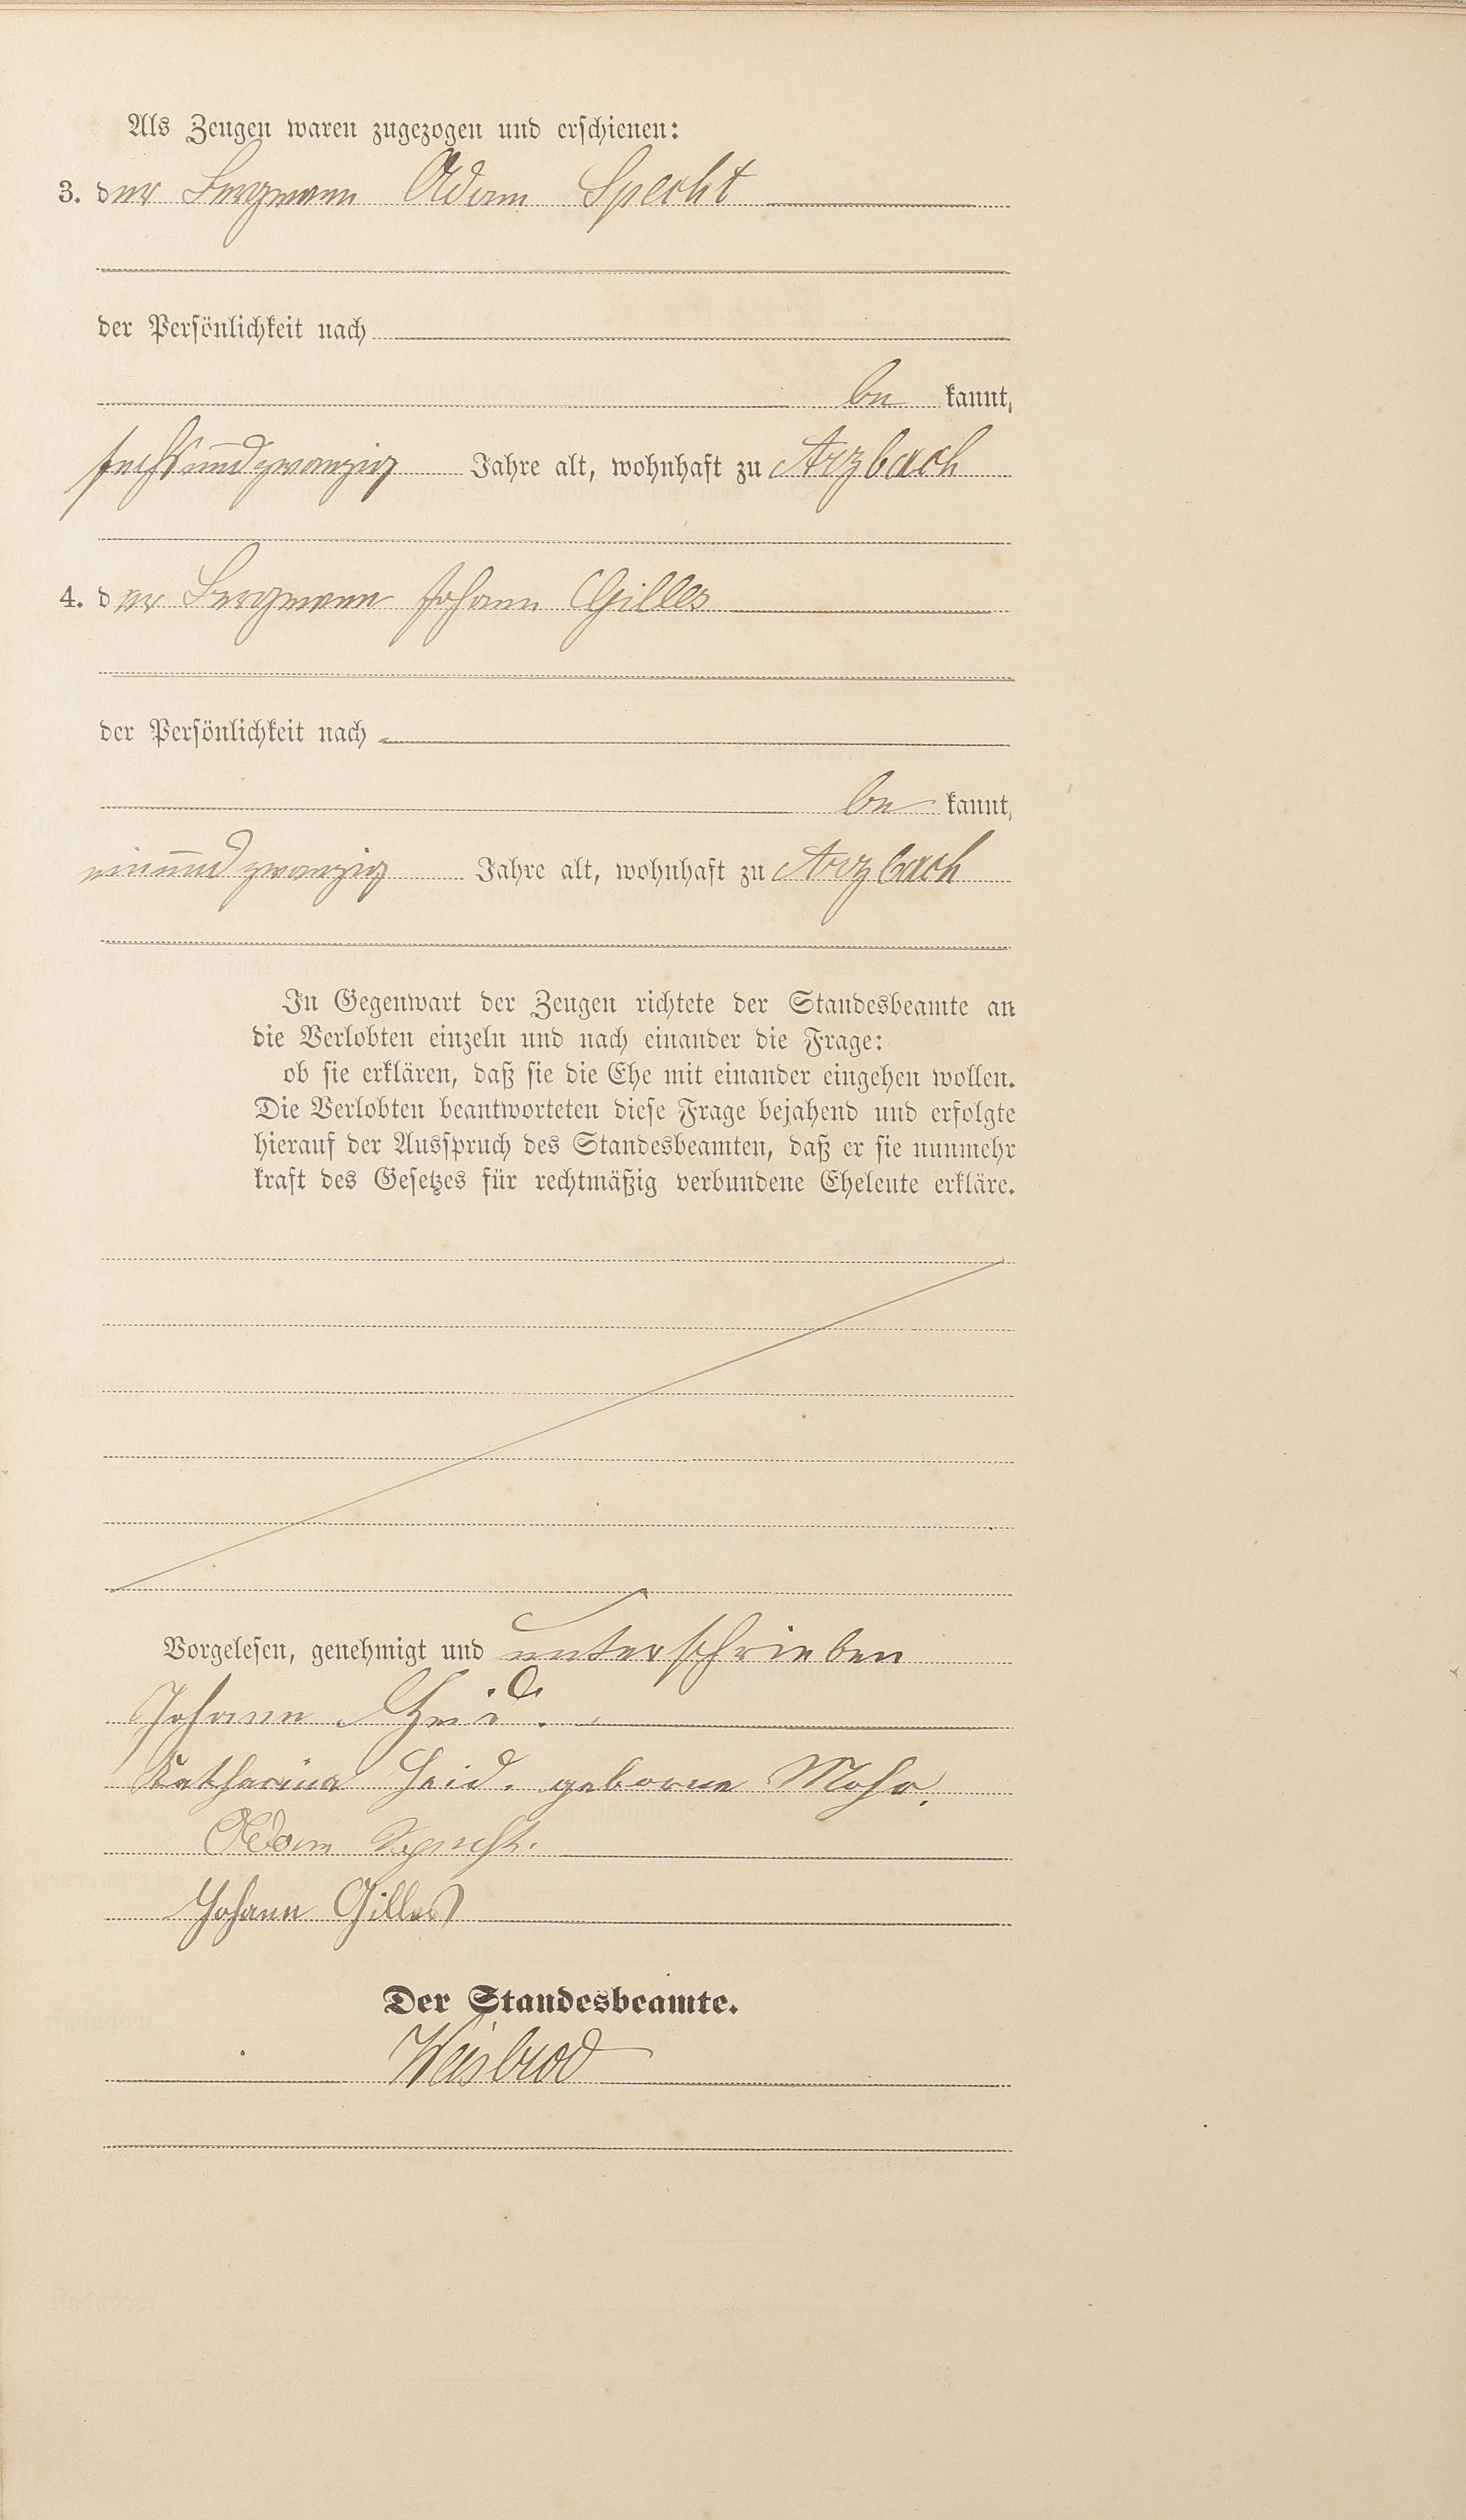 Als Zeugen waren zugezogen und erschienen:
3. der Bergmann Adam Specht
der Persönlichkeit nach
be kannt,
sechsundzwanzig Jahre alt, wohnhaft zu Arzbach
4. der Bergmann Johann Gilles
der Persönlichkeit nach
be kannt,
einundzwanzig Jahre alt, wohnhaft zu Arzbach
In Gegenwart der Zeugen richtete der Standesbeamte an
die Verlobten einzeln und nach einander die Frage:
ob sie erklären, daß sie die Ehe mit einander eingehen wollen.
Die Verlobten beantworteten diese Frage bejahend und erfolgte
hierauf der Ausspruch des Standesbeamten, daß er sie nunmehr
kraft des Gesetzes für rechtmäßig verbundene Eheleute erkläre.
Vorgelesen, genehmigt und unterschrieben
Johann Heid.
Katharina Heid. geborne Mohr.
Adam Specht.
Johann Gilles
Der Standesbeamte.
Weisbrod